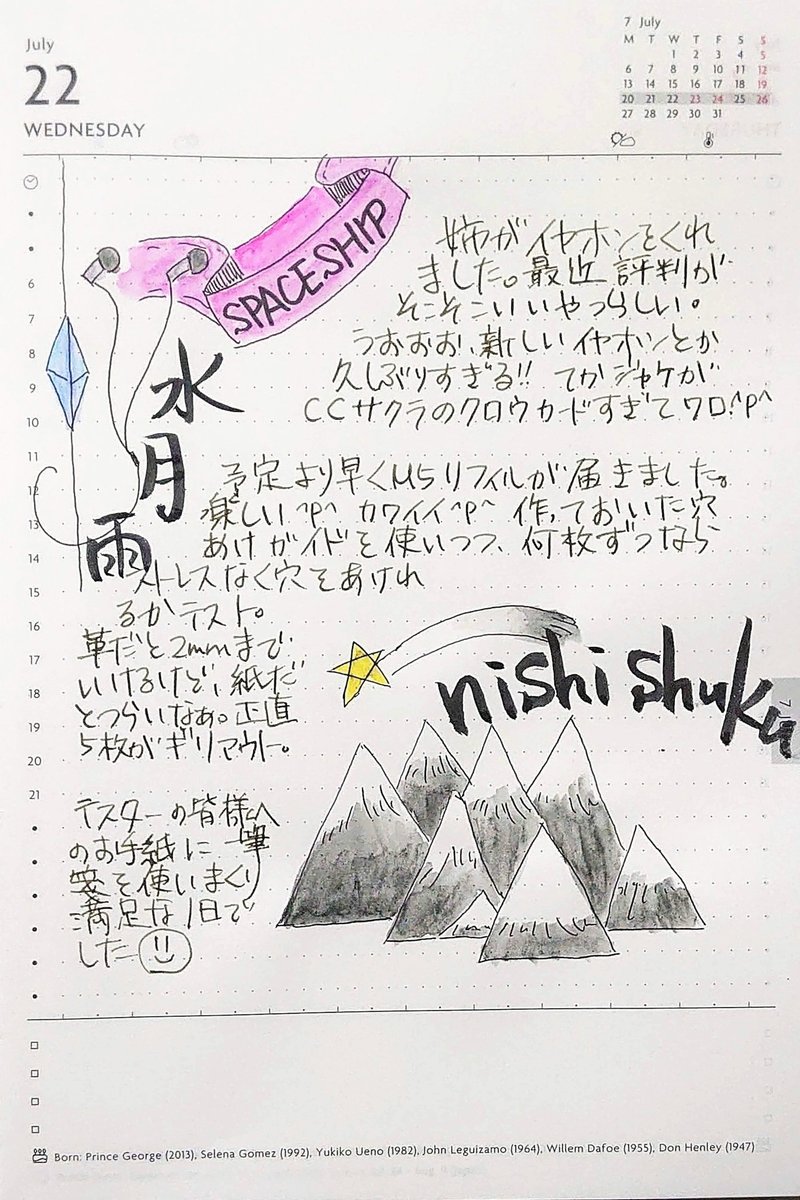 July
22
WEDNESDAY
7 July
M T W T F S S
1 2 3 4 5
6 7 8 9 10 11 12
13 14 15 16 17 18 19
20 21 22 23 24 25 26
27 28 29 30 31
SPACESHIP
水
月
雨
姉がイヤホンをくれ
ました。最近評判が
そこそこいいやつらしい。
うおおお、新しいイヤホンとか
久しぶりすぎる!! てかジャケが
CCサクラのクロウカードすぎてワロ^P^
予定より早くM5リフィルが届きました。
楽しい^P^ カワイイ^P^ 作っておいた穴
あけガイドを使いつつ、何枚ずつなら
ストレスなく穴をあけれ
るかテスト。
革だと2mmまで
いけるけど、紙だ
とつらいなぁ。正直
5枚がギリアウト。
nishi shuku
テスターの皆様へ
のお手紙に一筆
箋を使いまくり
満足な1日で
した
6
7
8
9
10
11
12
13
14
15
16
17
18
19
20
21
Born: Prince George (2013), Selena Gomez (1992), Yukiko Ueno (1982), John Leguizamo (1964), Willem Dafoe (1955), Don Henley (1947)